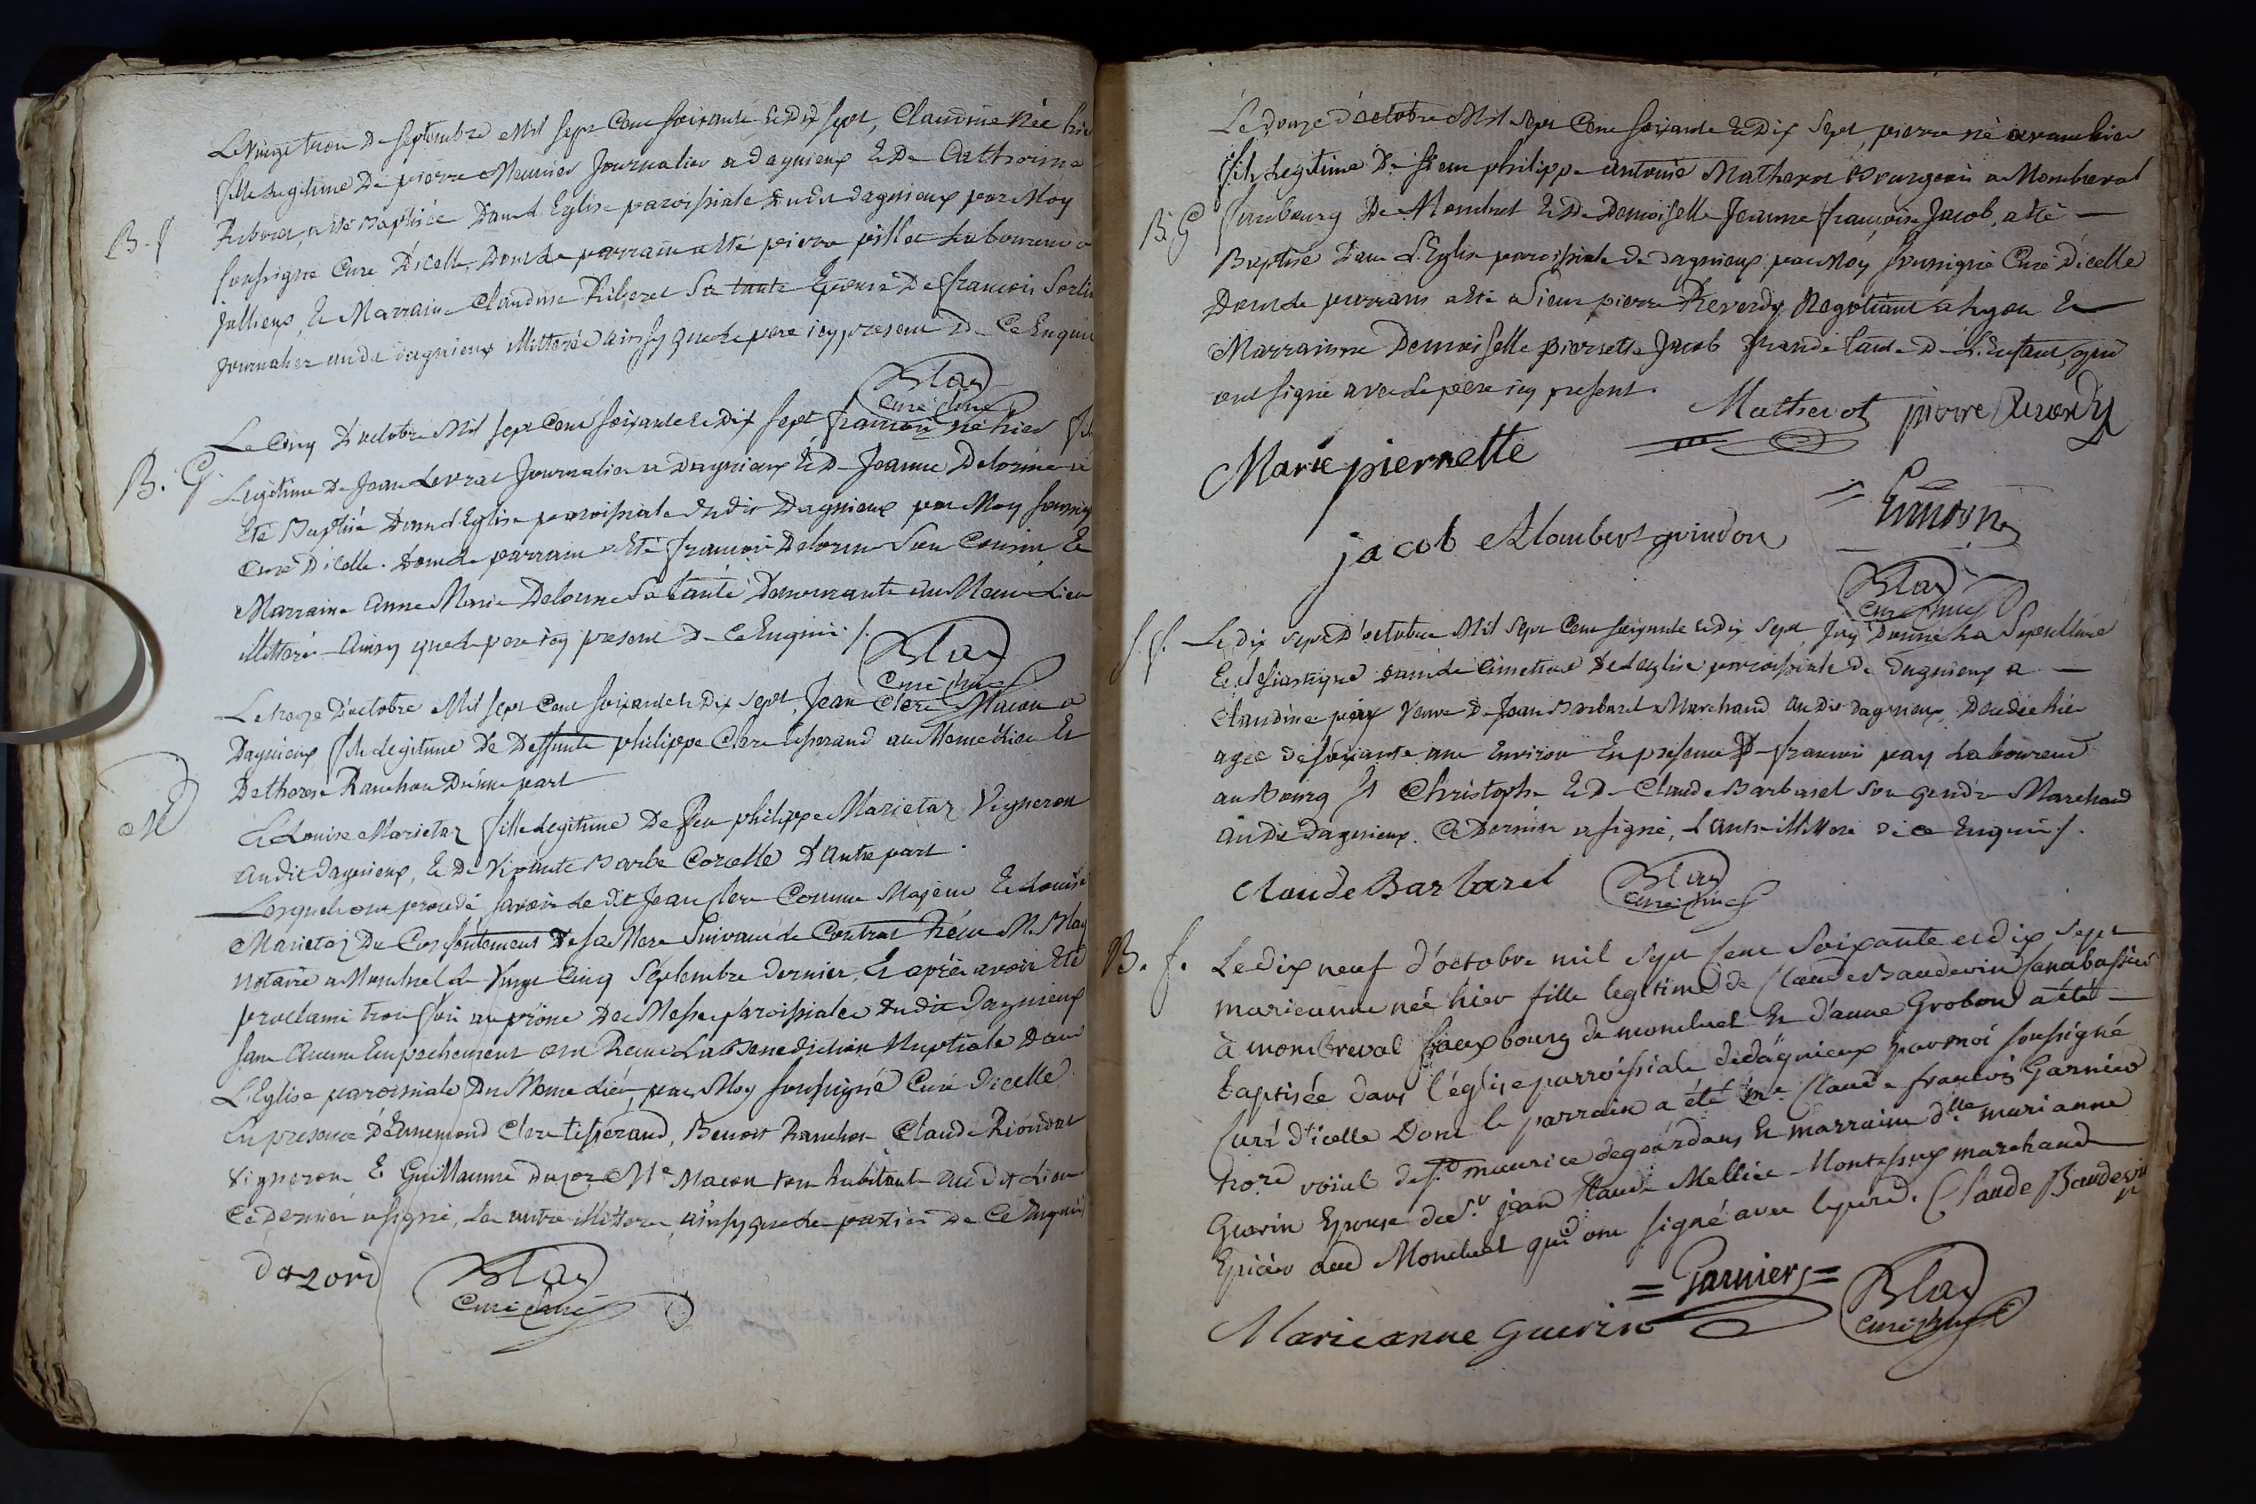 Le vingt trois De septembre Mil sept Cent soixante et Dix sept, Claudine Née hier
fille Legitime De pierre Meunier Journalier a dagnieux Et De Catherine
B. f Riboud, a été Baptisée Dans L'Eglise paroissiale Dudit dagnieux par Moy
soussigné Curé D'icelle, Dont le parrain a été pierre pillet Laboureur a
Jallieux, Et Marraine Claudine Riberet Sa tante Epouse De françois
Journalier audit dagnieux illitteré ainsy que le pere icy present De Ce Enquis
Blay
Curé
Le Cinq D'octobre Mil sept Cent soixante et Dix sept françois né hier fils
B. G. Legitime De Jean Levrat Journalier a Dagnieux Et De Jeanne Delorme a
Eté Baptisé Dans L'Eglise paroissiale Dudit Dagnieux par Moy soussigné
Curé D'icelle. Dont le parrain a Eté françois Delorme Son Cousin Et
Marraine Anne Marie Delorme Sa tante Demeurante au Meme Lieu
illitteré Ainsy que le pere icy present De Ce Enquis /.
Blay
Curé
Le treize D'octobre Mil sept Cent soixante et Dix sept, Jean Clere Macon a
Dagnieux fils Legitime De Deffunts philippe Clere tisserand au Meme Lieu Et
De therese Ranchon D'une part
M
Et Louise Marietaz fille Legitime De feu philippe Marietaz Vigneron
audit Dagnieux, Et De Vivante Barbe Corcelle D'autre part.
Lesquels ont procedé savoir Le dit Jean Clere Comme Majeur Et Louise
Marietaz Du Consentement De sa Mere Suivant le Contrat Recu Me Blay
Notaire a Montluel Le Vingt Cinq Septembre dernier, Et après avoir Eté
proclamé trois fois au prône Des Messes paroissiales Dudit Dagnieux
sans Aucun Empechement ont Recu La Benediction Nuptiale Dans
L'Eglise paroissiale Du Meme Lieu, par Moy soussigné Curé D'icelle.
En presence D'Ennemond Clere tisserand, Benoit Ranchon Claude Riondet
Vigneron Et Guillaume Macon tous habitants au dit Lieu
Ce Dernier a signé, Les autres illitteré, ainsy que les parties De Ce Enquis
Blay
Curé
Le Douze d'octobre Mil sept Cent soixante Et Dix sept, pierre né avant hier
fils Legitime De sieur philippe antoine Matheret Bourgeois a Montbreval
B. G fauxbourg De Montluel Et De Demoiselle Jeanne françoise Jacob, a été
Baptisé Dans L'Eglise paroissiale de Dagnieux par Moy soussigné Curé D'icelle
Dont le parrain a été Sieur pierre Reverdy Negotiant a Lyon Et
Marrainne Demoiselle pierrette Jacob grande tante De L'Enfant, qui
ont signé avec Le pere icy present.
Matherot pierre Reverdy
Marie pierrette
jacob
Blay
Curé
S. f. Le dix sept D'octobre Mil sept Cent soixante Et Dix sept J'ay Donné La Sepulture
Ecclesiastique Dans le Cimetiere De L'eglise paroissiale De Dagnieux a
Claudine pay Veuve De Jean Barbarel Marchand au Dit Dagnieux, Decedée hier
agée De soixante ans Environ En presence De françois pay Laboureur
au Bourg St Christophe Et De Claude Barbarel son gendre Marchand
audit Dagnieux. Ce Dernier a signé, L'autre illitteré De ce Enquis /.
Claude Barbarel Blay
Curé
B. f. Le dix neuf d'octobre mil sept cent soixante et dix sept
marieanne née hier fille legitime de Claude Baudevin
à montbreval fauxbourg de montluel et d'anne Grobon a été
baptisée dans l'église parroissiale de dagnieux par moi soussigné
Curé d'icelle Dont le parrain a été me Claude françois Garnier
no.re roial de St maurice de gourdans Et marraine dlle marianne
Guerin Epouse de Sr jean Claude Mellier Montessuy marchand
Epicier aud Montluel qui ont signé avec le père. Claude Baudevin
= Garnier =
Blay
Curé
Marieanne Guerin